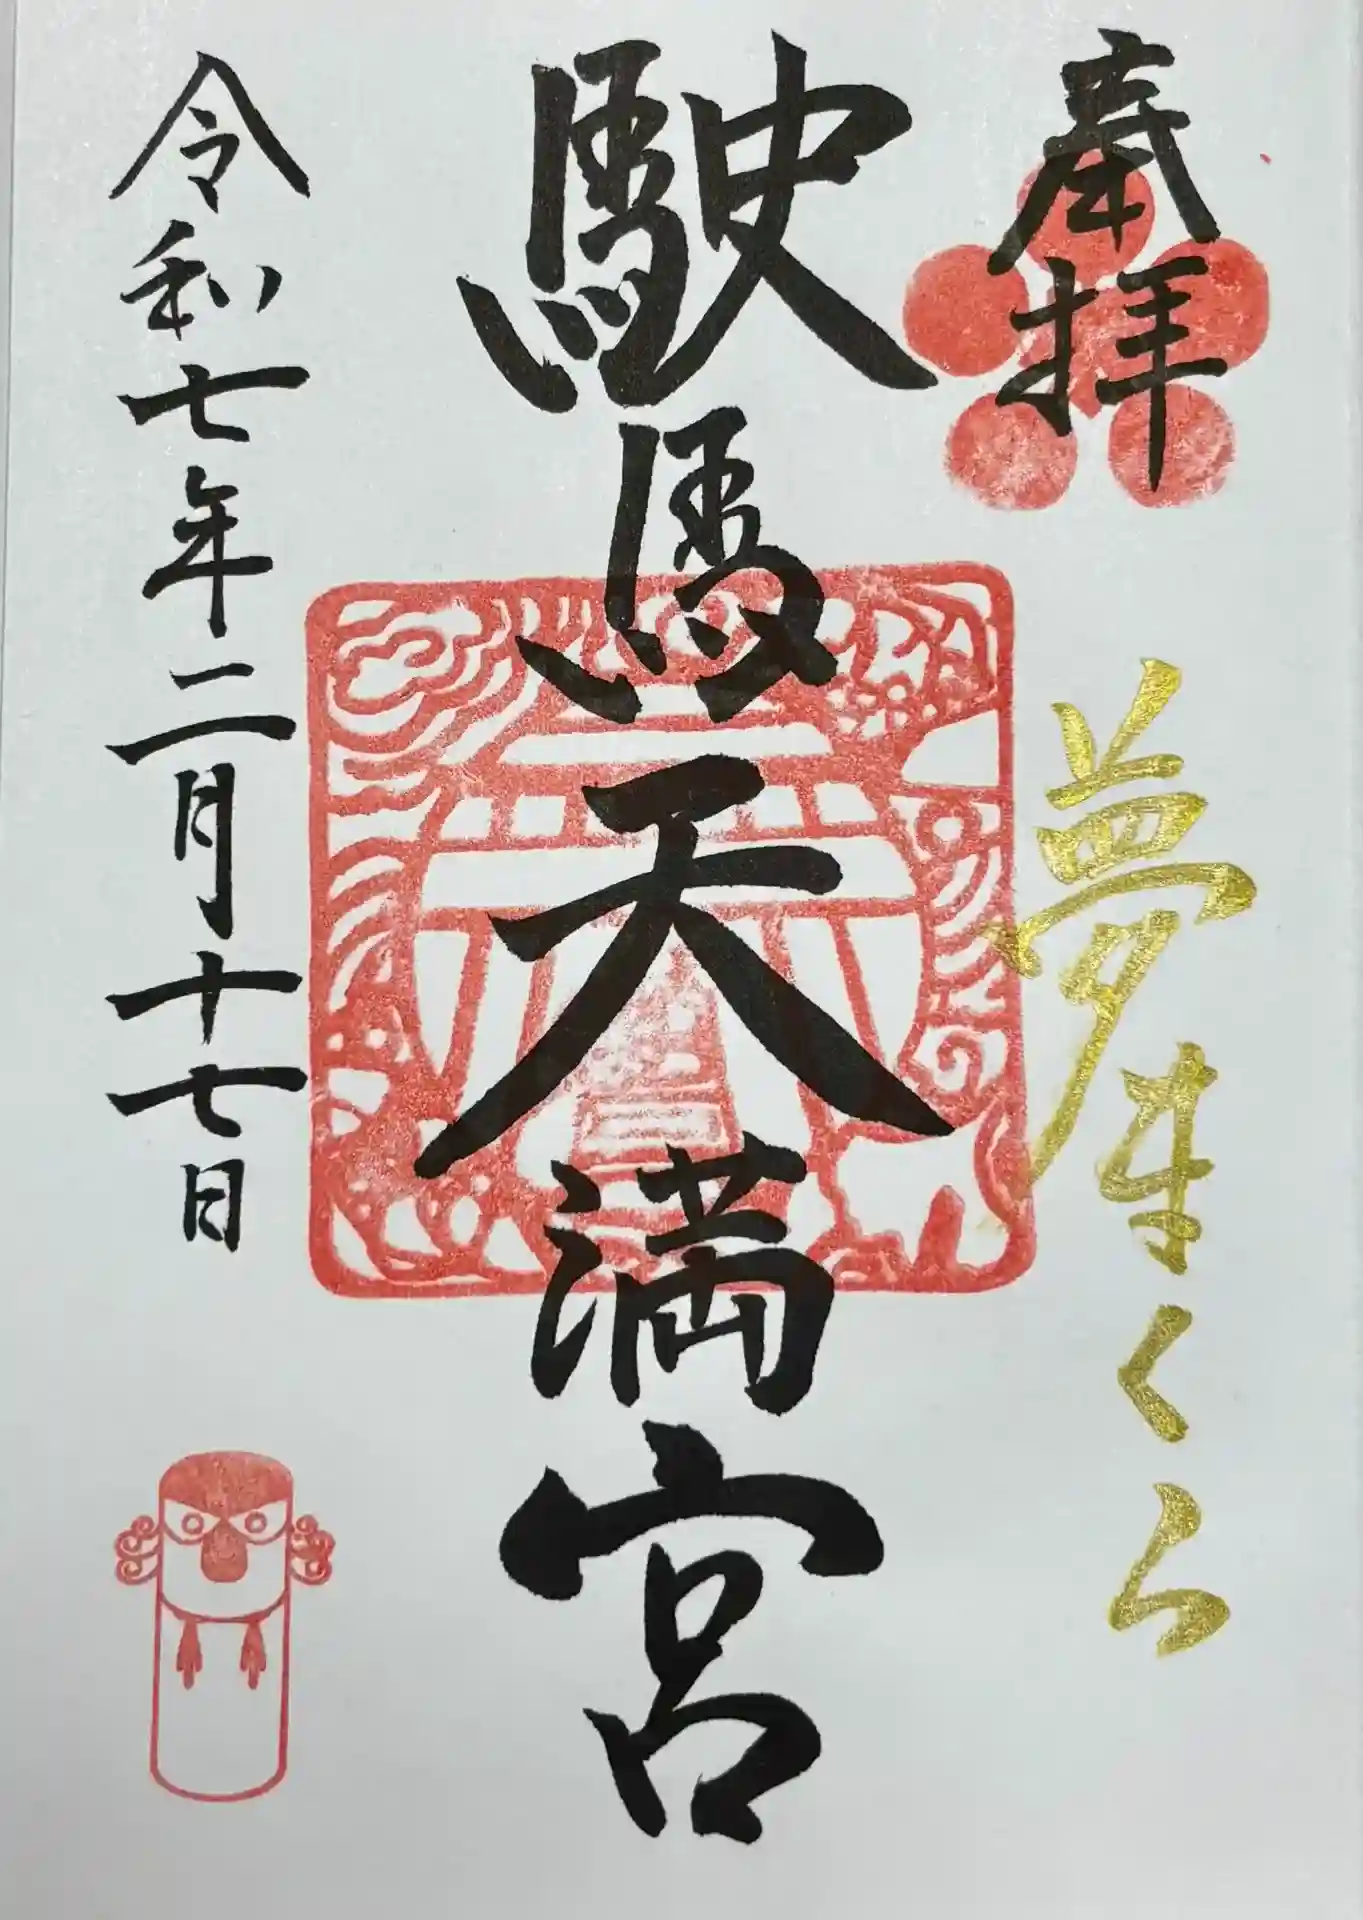 奉拝
夢生くら
駛馬天満宮
令和七年二月十七日